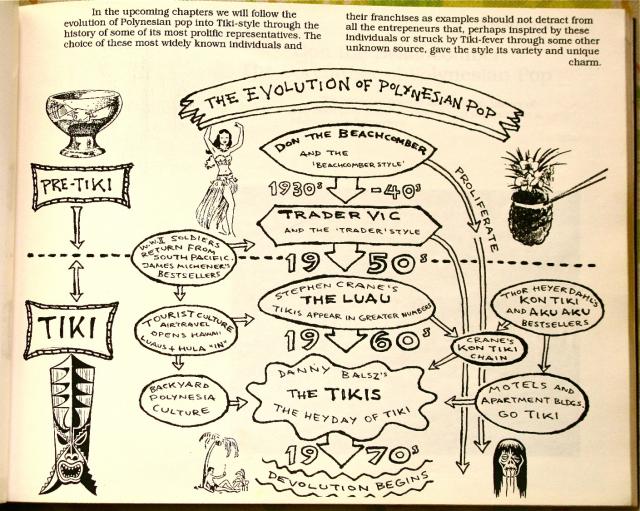 In the upcoming chapters we will follow the
evolution of Polynesian pop into Tiki-style through the
history of some of its most prolific representatives. The
choice of these most widely known individuals and
their franchises as examples should not detract from
all the entrepeneurs that, perhaps inspired by these
individuals or struck by Tiki-fever through some other
unknown source, gave the style its variety and unique
charm.
THE EVOLUTION OF POLYNESIAN POP
PRE-TIKI
DON THE BEACHCOMBER
AND THE
'BEACHCOMBER STYLE'
PROLIFERATE
1930s -40s
TRADER VIC
AND THE 'TRADER' STYLE
W.W.II SOLDIERS
RETURN FROM
SOUTH PACIFIC.
JAMES MICHENER'S
BESTSELLERS
1950s
TIKI
STEPHEN CRANE'S
THE LUAU
TIKIS APPEAR IN GREATER NUMBERS
THOR HEYERDAHL'S
KON TIKI
AND AKU AKU
BESTSELLERS
TOURIST CULTURE
AIRTRAVEL
OPENS HAWAII
LUAUS + HULA "IN"
1960s
CRANE'S
KON TIKI
CHAIN
BACKYARD
POLYNESIA
CULTURE
DANNY BALSZ'S
THE TIKIS
THE HEYDAY OF TIKI
MOTELS AND
APARTMENT BLDGS.
GO TIKI
1970s
DEVOLUTION BEGINS